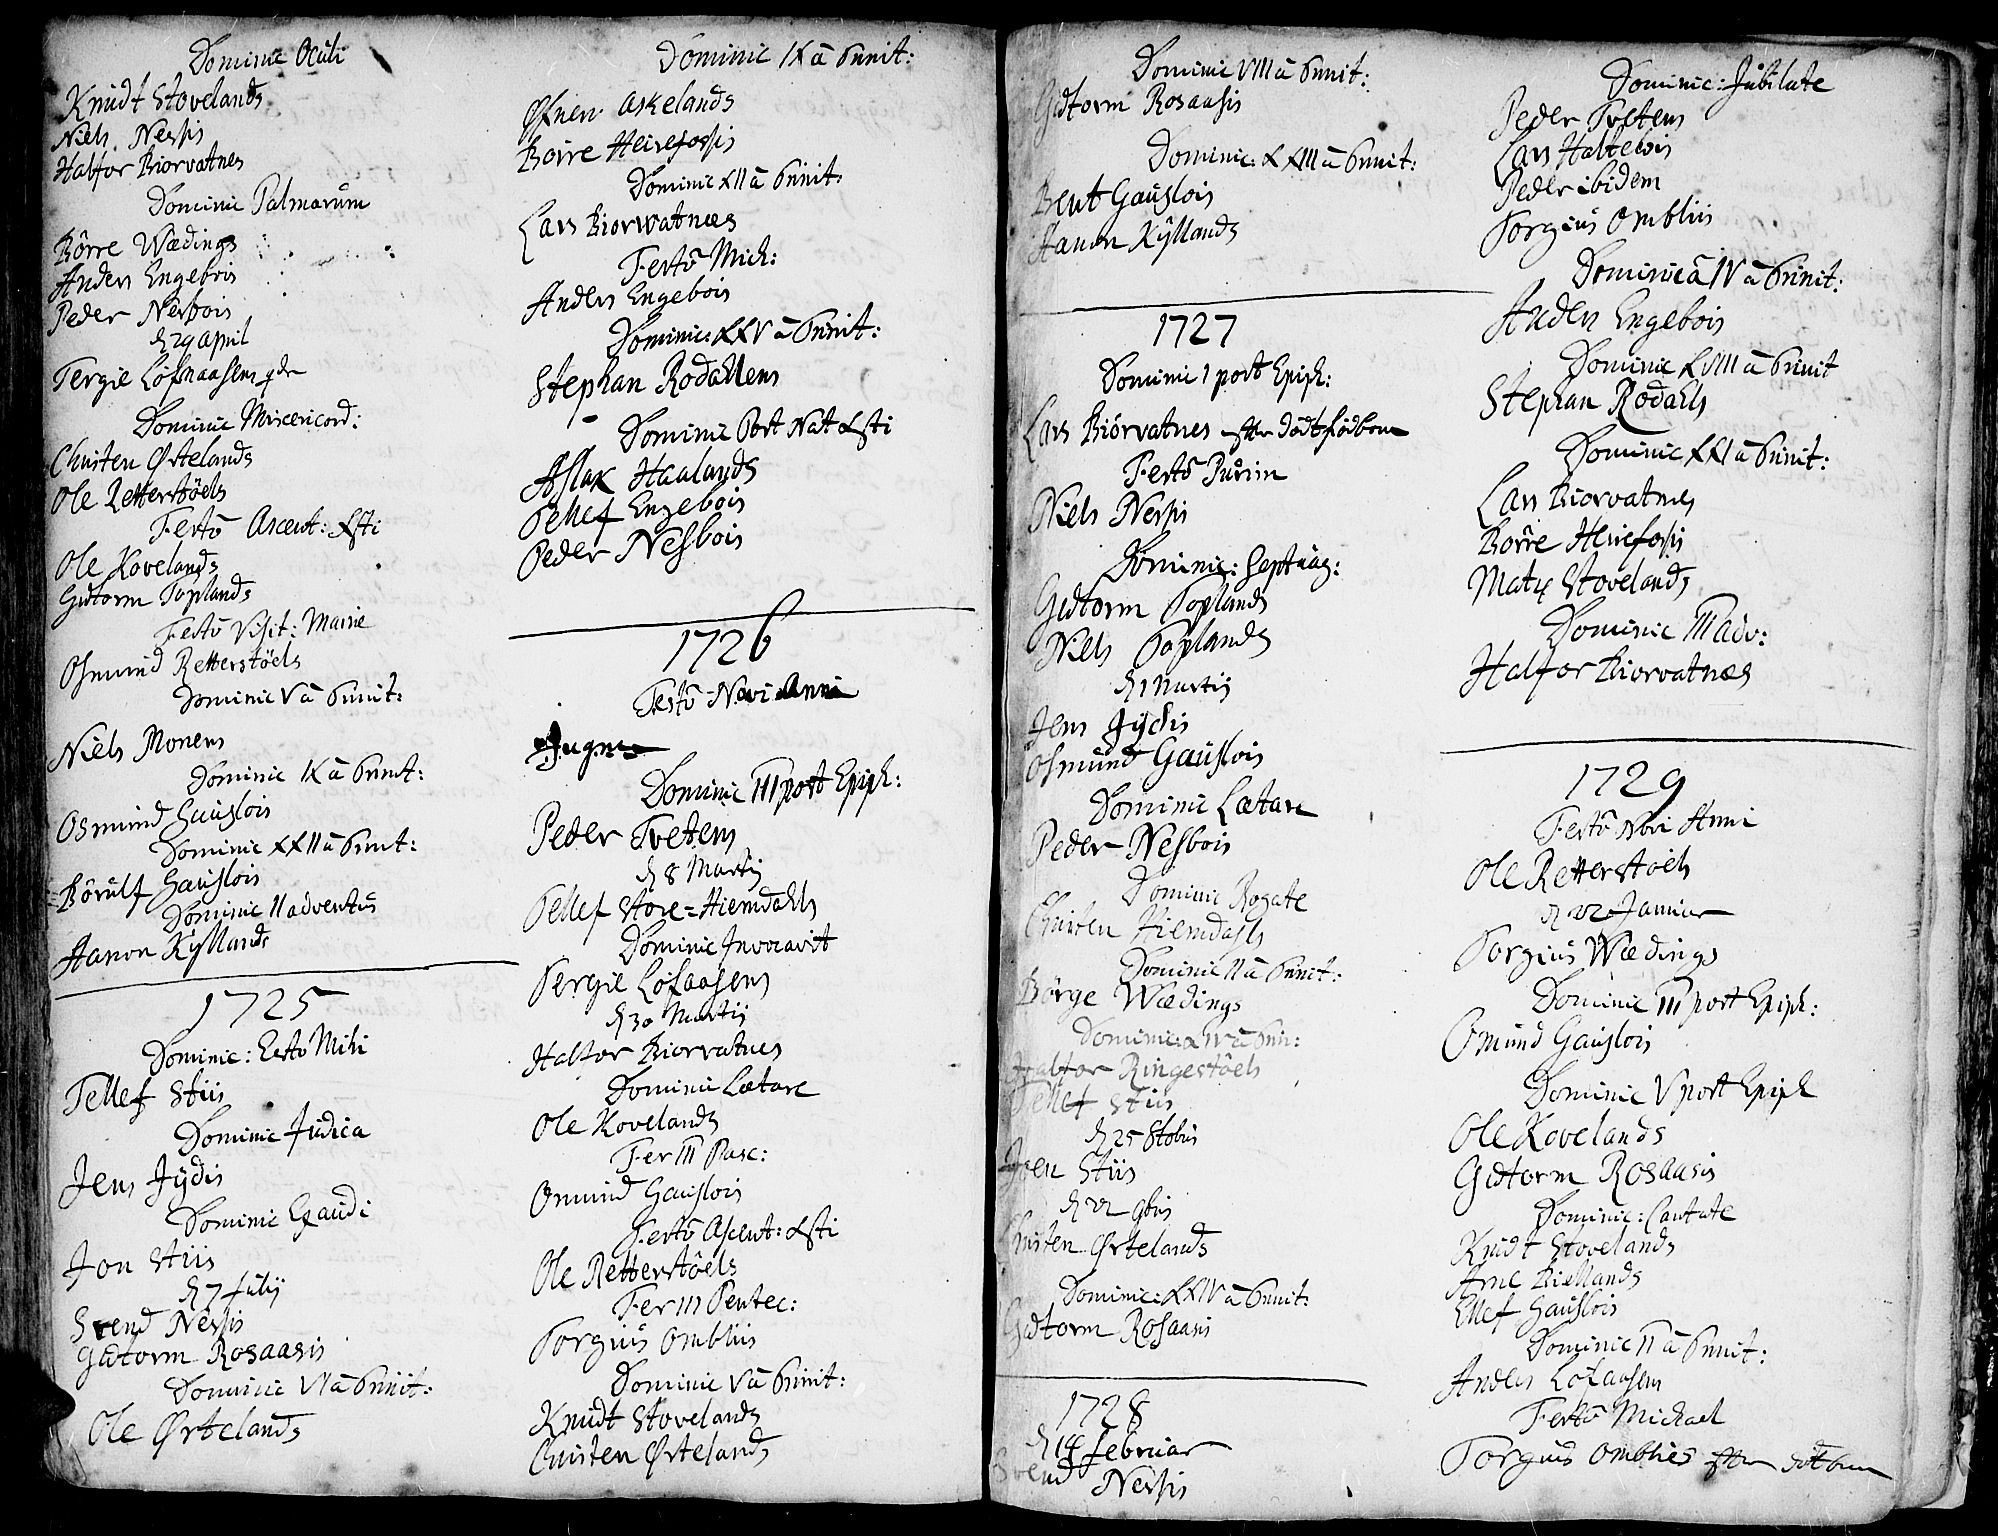 Dominic Oculi
Knudt Stovelands
Niels Nersis
Halfor Biorvatnes
Dominic Palmarum
Börre Wædings
Anders Engebois
Peder Nesbois
d 29 April
Tergie Lofnaasens
Dominic Misericord:
Christen Ørtelands
Ole Retterstöels
Festo Ascent: Xsti
Ole Kovelands
Gutorm Toplands
Festo Visit: Mariæ
Osmund Retterstöels
Dominic V â Trinit:
Niels Monens
Dominic IX â Trinit:
Osmund Gauslois
Dominic XXII â Trinit:
Börulf Gauslois
Dominic II adventus
Hanon Kÿllands
1725
Dominic: Esto Mihi
Tellef Stiis
Dominic Judica
Jens Jÿdis
Dominic Exaudi
Jon Stiis
d 7 Julij
Svend Nersis
Gutorm Rosaasis
Dominic VI â Trinit:
Ole Ørtelands
Dominic IX â Trinit:
Askelands
Börre Heirefossis
Dominic XII â Trinit:
Lars Biorwatnes
Festo Mich:
Anders Engebois
Dominic: XXV â Trinit:
Stephan Rodahlens
Dominic Post Nat Xsti
Aslak Haalands
Tellef Engebois
Peder Nesbois
1726
Festo Novi Anni
Dominic III post Epiph:
Peder Tvetens
d 8 Martij
Tellef Store-Hiemdahls
Dominic Invocavit
Tergie Lofaasens
d 30 Martij
Halfor Biorvatnes
Dominic Lætare
Ole Kovelands
Fer III Pasc:
Osmund Gauslois
Festo Ascent: Xsti
Ole Retterstöels
Fer III Pentec:
Torgius Ombliis
Dominic V â Trinit:
Knudt Stovelands
Christen Ørtelands
Dominic VIII â Trinit:
Gutorm Rosaasis
Dominic: XXIII â Trinit:
Bent Gauslois
Hanon Kÿllands
1727
Dominic I post Epiph:
Lars Biörvatnes
Festo Purim
Niels Nersis
Dominic: Septuag:
Gutorm Toplands
Niels Toplands
d 1 Martij
Jens Jÿdis
Osmund Gauslois
Dominic Lætare
Peder Nesbois
Dominic Rogate
Christen Hiemdahls
Dominic II â Trinit:
Börge Wædings
Halfor Ringestöels
Tellef Stiis
d 25 8tobris
Joen Stiis
d 22 9bris
Christen Ørtelands
Dominic: XXIV â Trinit:
Gutorm Rosaasis
1728
d 18 Februar
Svend Nersis
Dominic: Jubilate
Peder Tvetens
Lars Haltebois
Peder ibidem
Torgius Ombliis
Dominicâ IV â Trinit:
Anders Engebois
Dominic XVIII â Trinit
Stephan Rodahls
Dominic XXI â Trinit:
Lars Biorvatnes
Börre Heirefossis
Dominic III adv:
Halfor Biorvatnæs
1729
Festo Novi Anni
Ole Retterstöels
d 22 Januar
Torgius Wædings
Dominic III post Epiph:
Omund Gauslois
Dominic V post Epiph
Ole Kovelands
Gutorm Rosaasis
Dominic: Cantate
Knudt Stovelands
Arne Biellands
Ellef Gauslois
Dominic II â Trinit:
Anders Lofaasens
Festo Michael
Torgius Omblies